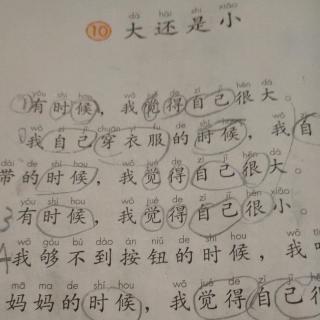 dà hái shì xiǎo
10 大还是小
yǒu shí hou wǒ jué de zì jǐ hěn dà
1 有时候，我觉得自己很大。
wǒ zì jǐ chuān yī fu de shí hou wǒ zì
2 我自己穿衣服的时候，我自
dài de shí hou wǒ jué de zì jǐ hěn dà
带的时候，我觉得自己很大。
yǒu shí hou wǒ jué de zì jǐ hěn xiǎo
3 有时候，我觉得自己很小。
wǒ gòu bú dào àn niǔ de shí hou wǒ
4 我够不到按钮的时候，我
mā ma de shí hou wǒ jué de zì jǐ hěn
妈妈的时候，我觉得自己很